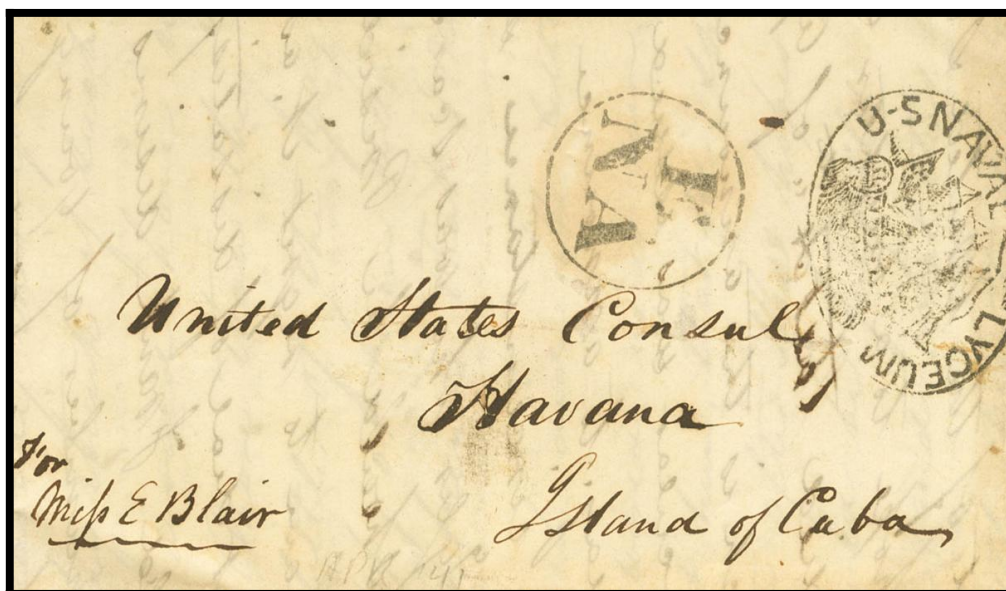 NA
1
U-S NAVAL LYCEUM
United States Consul
Havana
Island of Cuba
For
Miſs E Blair